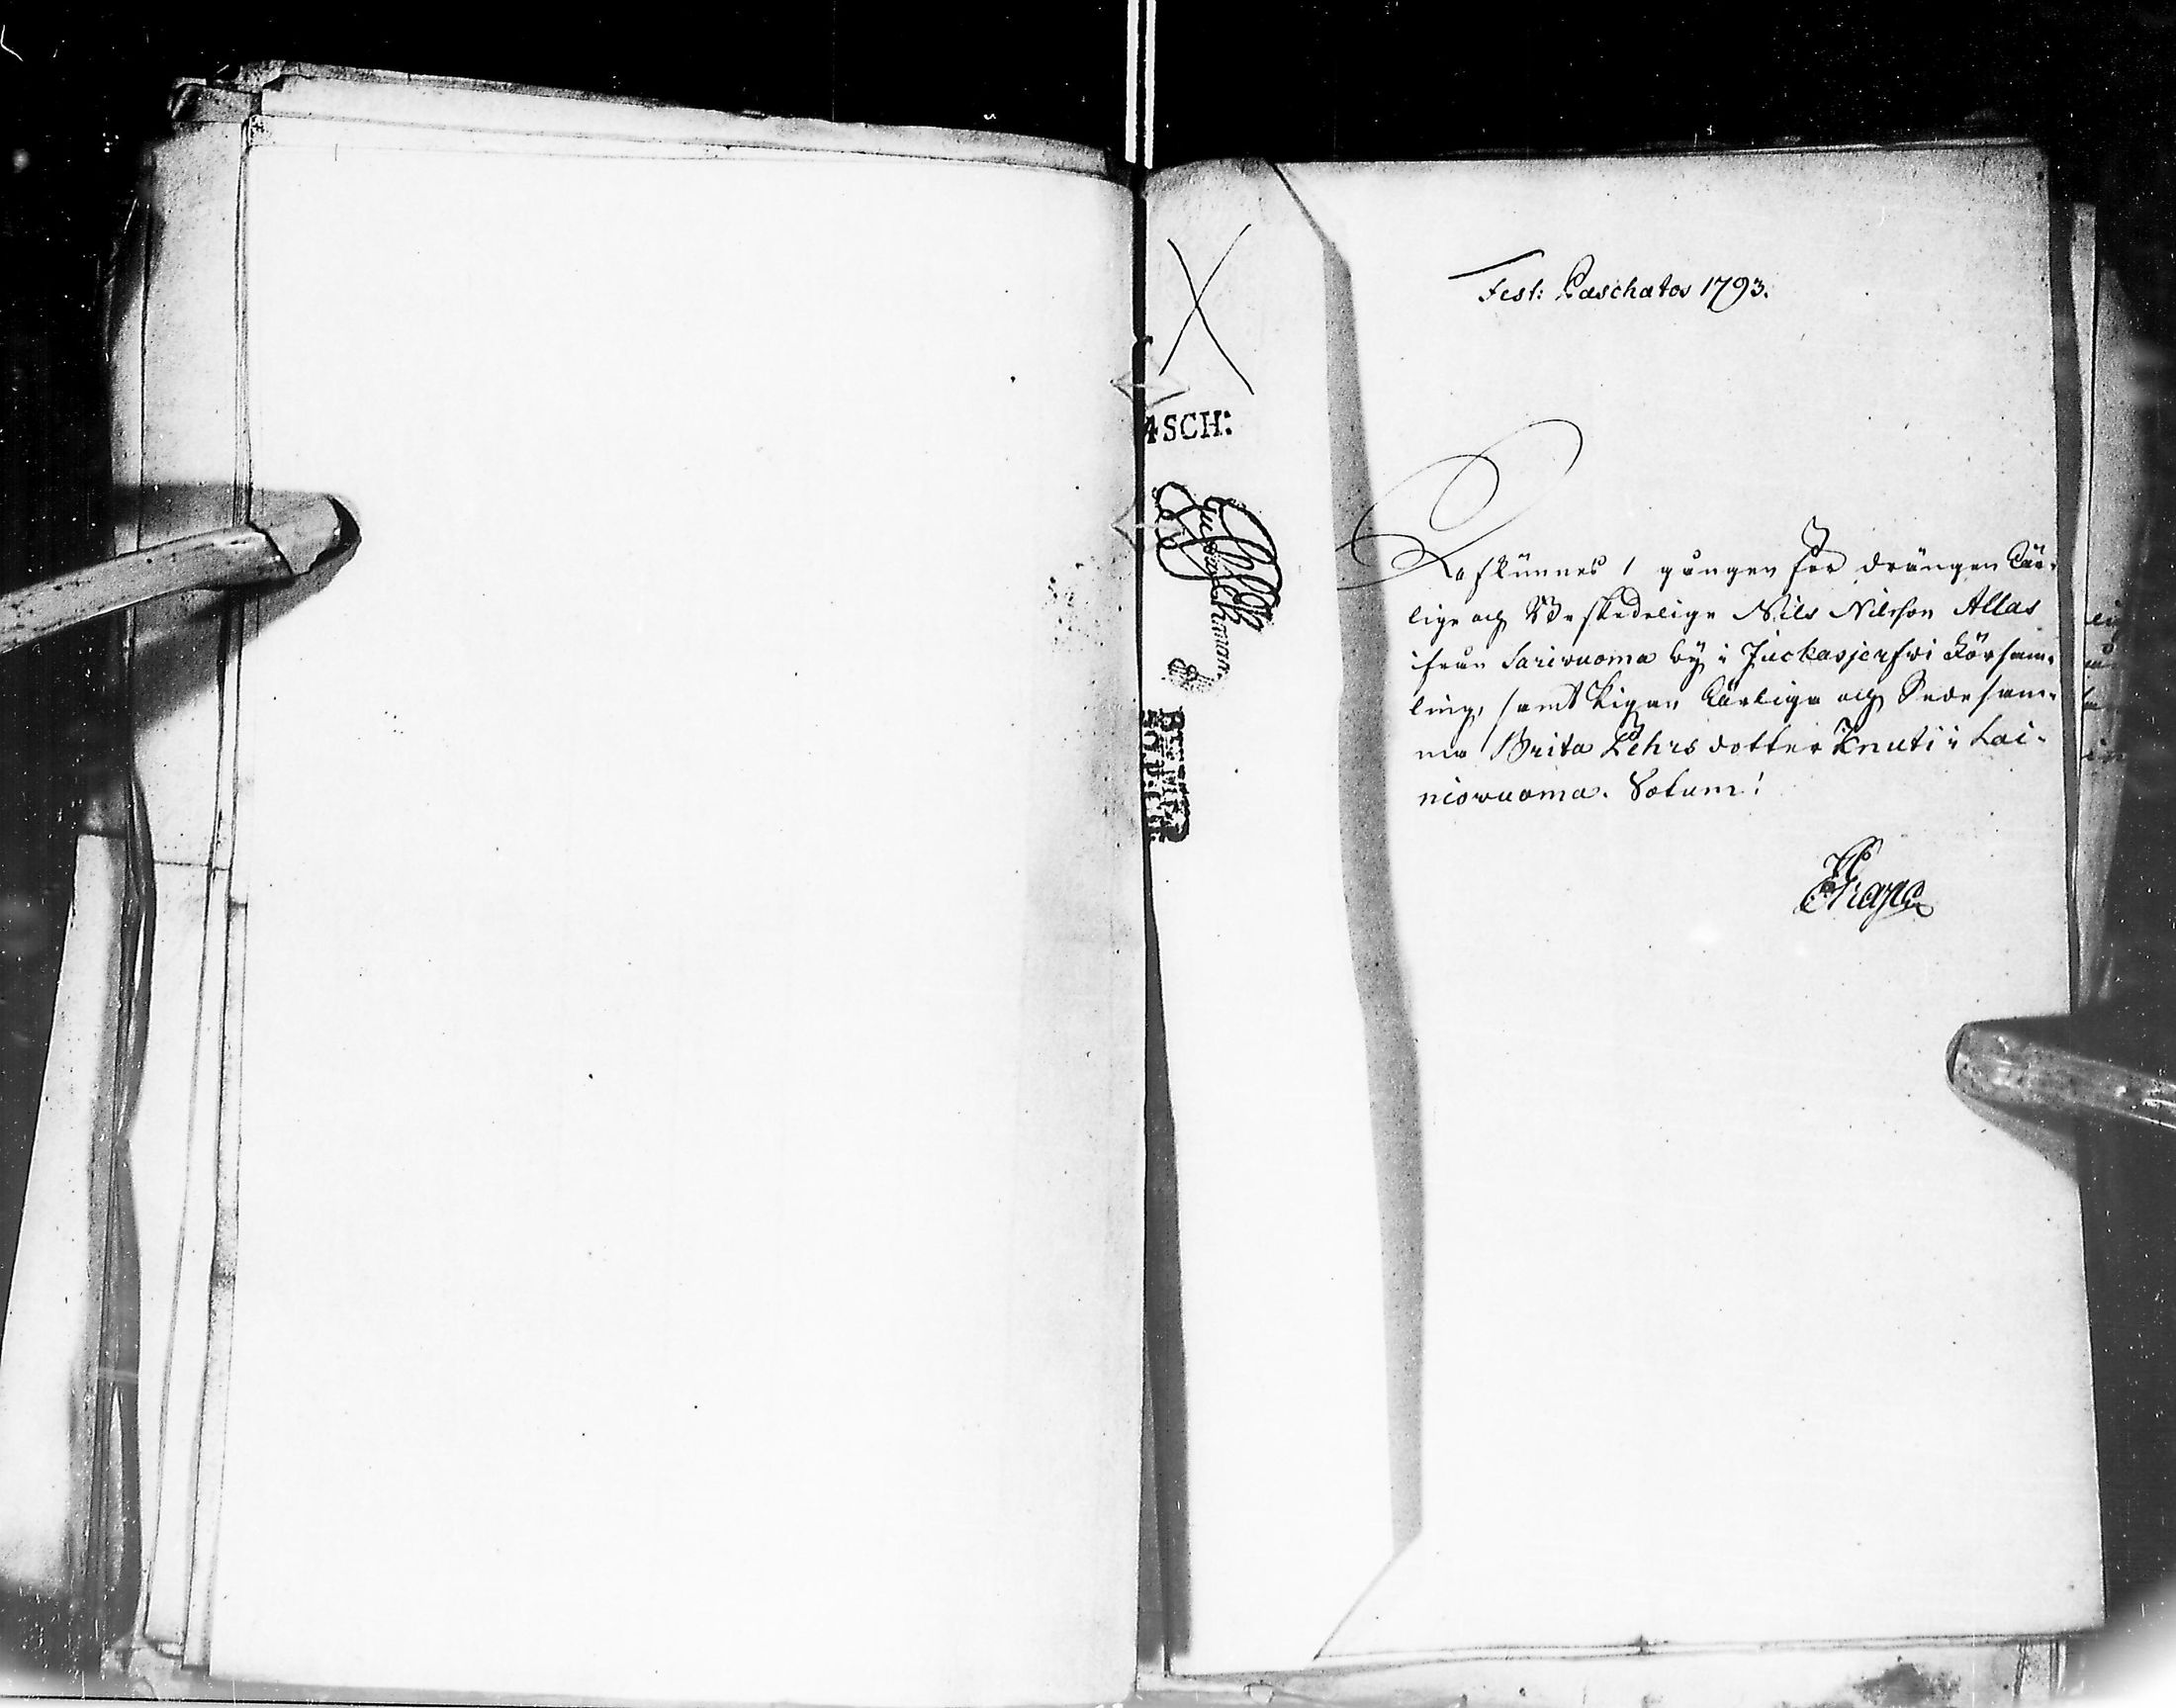 Fest: Paschatos 1793.
4SCH:
Afkünnes 1 gången för drängen Ähr-
lige och Beskedelige Nils Nilsson Allas
ifrån Sariwuoma by i Juckasjerfwi Försam-
ling, samt Pigan Ährliga och Sedesam-
ma Brita Pehrs dotter Knuti i Lai-
niowuoma. Votum!